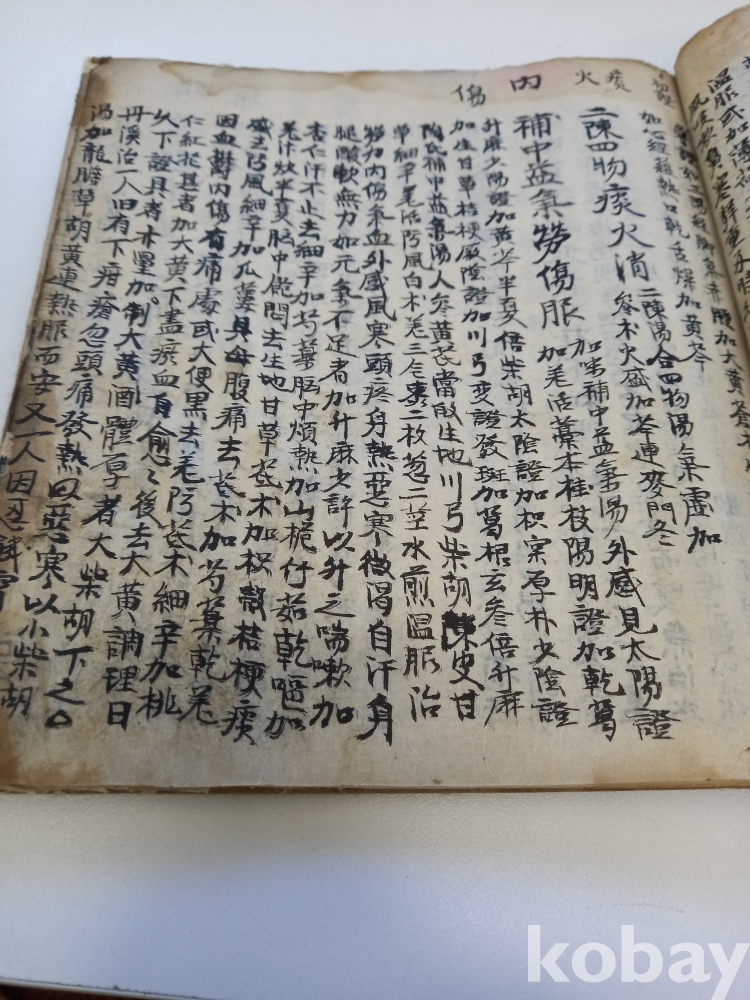 痰火
內傷
如心經雜熱口乾舌燥加黃芩
二陳四物痰火消 二陳湯合四物湯氣虛加
參朮火盛加芩連麥門冬
補中益氣勞傷服 加味補中益氣湯外感見太陽證
加羌活藁本桂枝陽明證加乾葛
升麻少陽證加黃芩半夏倍柴胡太陰證加枳宲厚朴少陰證
加生甘草桔梗厥陰證加川弓変證發斑加葛根玄參倍升麻
陶氏補中益氣湯人參黃芪當歸生地川弓柴胡陳皮甘
草細辛羌活防風白朮羌三片棗二枚葱二莖水煎溫服治
勞力內傷氣血外感風寒頭疼身熱惡寒微渴自汗身
腿酸軟無力如元氣不足者加升麻少許以升之喘嗽加
杏仁汗不止去細辛加芍藥胸中煩熱加山梔仔茹乾嘔加
羌汁炒半夏胸中飽悶去生地甘草芪朮加枳殼桔梗痰
盛去防風細辛加瓜蔞貝母腹痛去芪朮加芍藥乾羌
因血鬱內傷有痛處或大便黑去羌防芪朮細辛加桃
仁紅花甚者加大黃下盡瘀血自愈愈後去大黃調理日
以下證具者亦量加制大黃酒體厚者大柴胡下之
丹溪治一人旧有下疳瘡忽頭痛發熱曰惡寒以小柴胡
湯加龍膽草胡黃連熱服而安又一人因
kobay